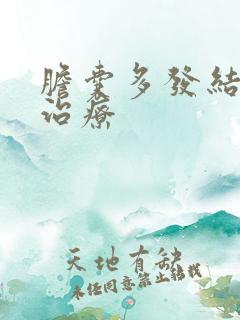 膽囊多發結
治療
天地有缺
未經同意禁止轉載